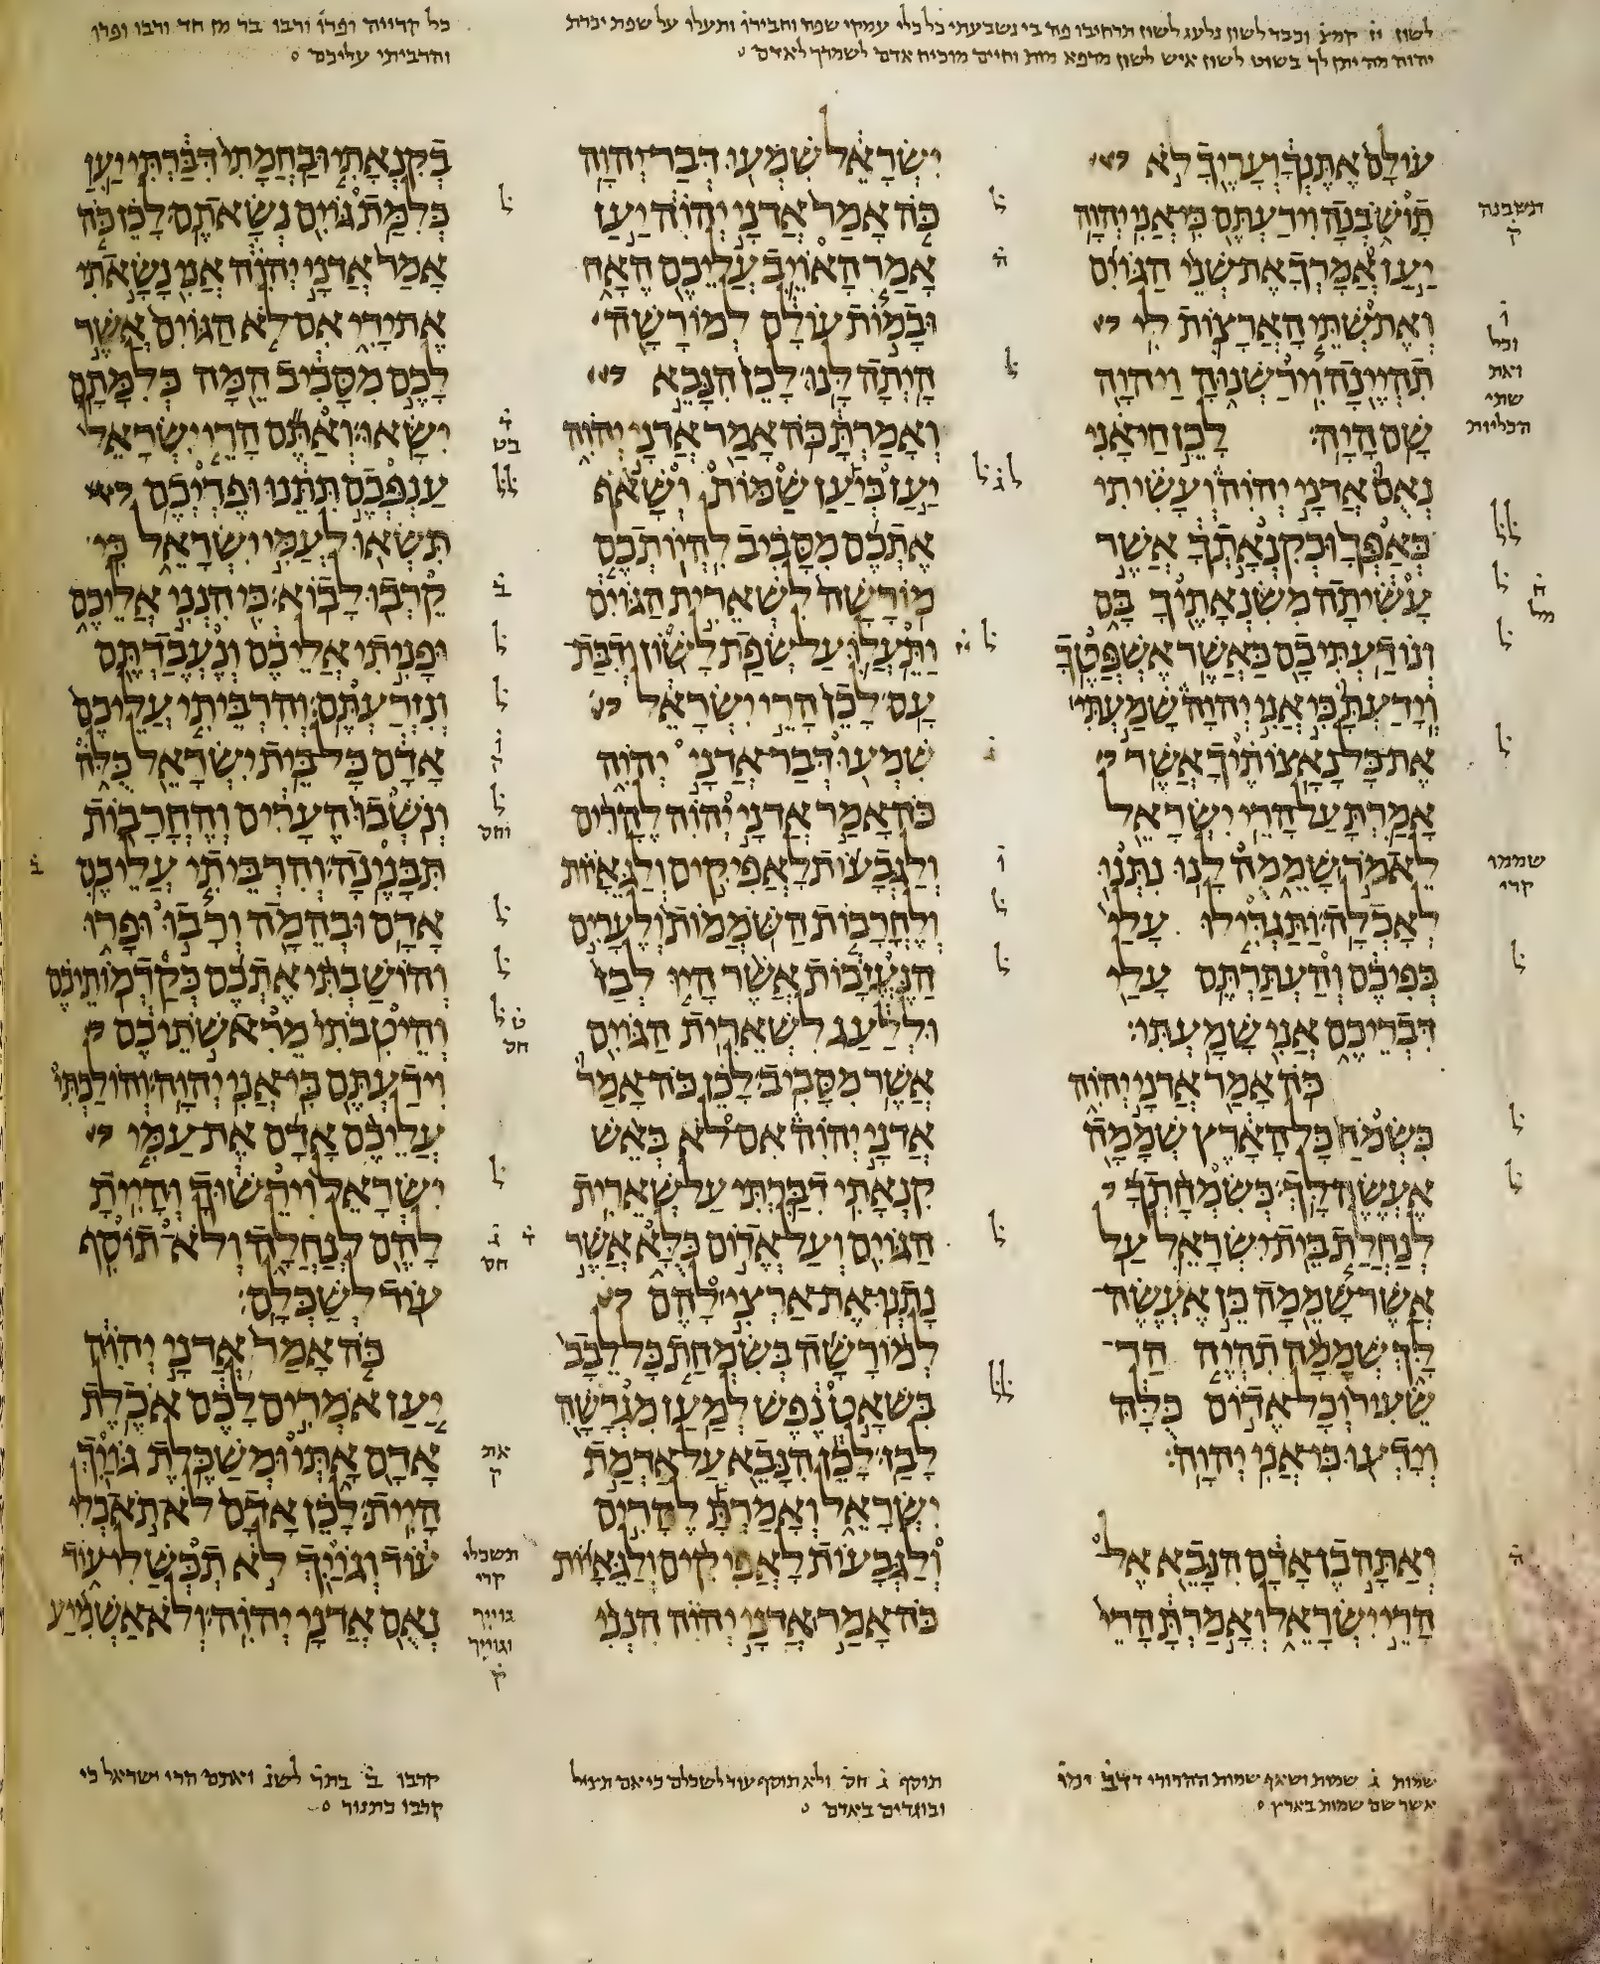 לשון יז קמצ וכבד לשון נלעג לשון תרחיבו פה בי נשבעתי כל כלי עמקי שפה וחבירו ותעלו על שפת יכרת
יהוה מה יתן לך בשוט לשון איש לשון מרפא מות וחיים מוכיח אדם לשמרך לאדם
כל קרייה ופרו ורבו בר מן חד ורבו ופרו
והרביתי עליכם
עולם אתנך ועריך לא
תושבנה וידעתם כי אני יהוה
יען אמרך את שני הגוים
ואת שתי הארצות לי
תהיינה וירשנוה ויהוה
שם היה׃ לכן חי אני
נאם אדני יהוה ועשיתי
כאפך וכקנאתך אשר
עשיתה משנאתיך בם
ונודעתי בם כאשר אשפטך
וידעת כי אני יהוה שמעתי
את כל נאצותיך אשר
אמרת על הרי ישראל
לאמר שממה לנו נתנו
לאכלה׃ ותגדילו עלי
בפיכם והעתרתם עלי
דבריכם אני שמעתי׃
כה אמר אדני יהוה
כשמח כל הארץ שממה
אעשה לך׃ כשמחתך
לנחלת בית ישראל על
אשר שממה כן אעשה
לך שממה תהיה הר
שעיר וכל אדום כלה
וידעו כי אני יהוה׃
ואתה בן אדם הנבא אל
הרי ישראל ואמרת הרי
ישראל שמעו דבר יהוה
כה אמר אדני יהוה יען
אמר האויב עליכם האח
ובמות עולם למורשה
היתה לנו׃ לכן הנבא
ואמרת כה אמר אדני יהוה
יען ביען שמות ושאף
אתכם מסביב להיותכם
מורשה לשארית הגוים
ותעלו על שפת לשון ודבת
עם׃ לכן הרי ישראל
שמעו דבר אדני יהוה
כה אמר אדני יהוה להרים
ולגבעות לאפיקים ולגאיות
ולחרבות השממות ולערים
הנעזבות אשר היו לבז
וללעג לשארית הגוים
אשר מסביב׃ לכן כה אמר
אדני יהוה אם לא באש
קנאתי דברתי על שארית
הגוים ועל אדום כלא אשר
נתנו את ארצי להם
למורשה בשמחת כל לבב
בשאט נפש למען מגרשה
לבז׃ לכן הנבא על אדמת
ישראל ואמרת להרים
ולגבעות לאפיקים ולגאיות
כה אמר אדני יהוה הנני
בקנאתי ובחמתי דברתי יען
כלמת גוים נשאתם׃ לכן כה
אמר אדני יהוה אני נשאתי
את ידי אם לא הגוים אשר
לכם מסביב המה כלמתם
ישאו׃ ואתם הרי ישראל
ענפכם תתנו ופריכם
תשאו לעמי ישראל כי
קרבו לבוא׃ כי הנני אליכם
ופניתי אליכם ונעבדתם
ונזרעתם׃ והרביתי עליכם
אדם כל בית ישראל כלה
ונשבו הערים והחרבות
תבנינה׃ והרביתי עליכם
אדם ובהמה ורבו ופרו
והושבתי אתכם כקדמותיכם
והיטבתי מראשתיכם
וידעתם כי אני יהוה׃ והולכתי
עליכם אדם את עמי
ישראל וירשוך והיית
להם לנחלה ולא תוסף
עוד לשכלם׃
כה אמר אדני יהוה
יען אמרים לכם אכלת
אדם אתי ומשכלת גויך
היית׃ לכן אדם לא תאכלי
עוד וגויך לא תכשלי עוד
נאם אדני יהוה׃ ולא אשמיע
תשבנה
ק
וכל
ואת
שתי
הכליות
שממו
קרי
את
ק
תשכלי
קרי
גוייך
וגוייך
ק
שמות ג שמות ושאף שמות ההרורי
אשר שם שמות בארץ
תוסף ג חס ולא תוסף עוד לשכלם כי אם תציל
ובוגדים באדם
קרבו ב בתר לשנ ואתם הרי ישראל כי
קרבו כתנור